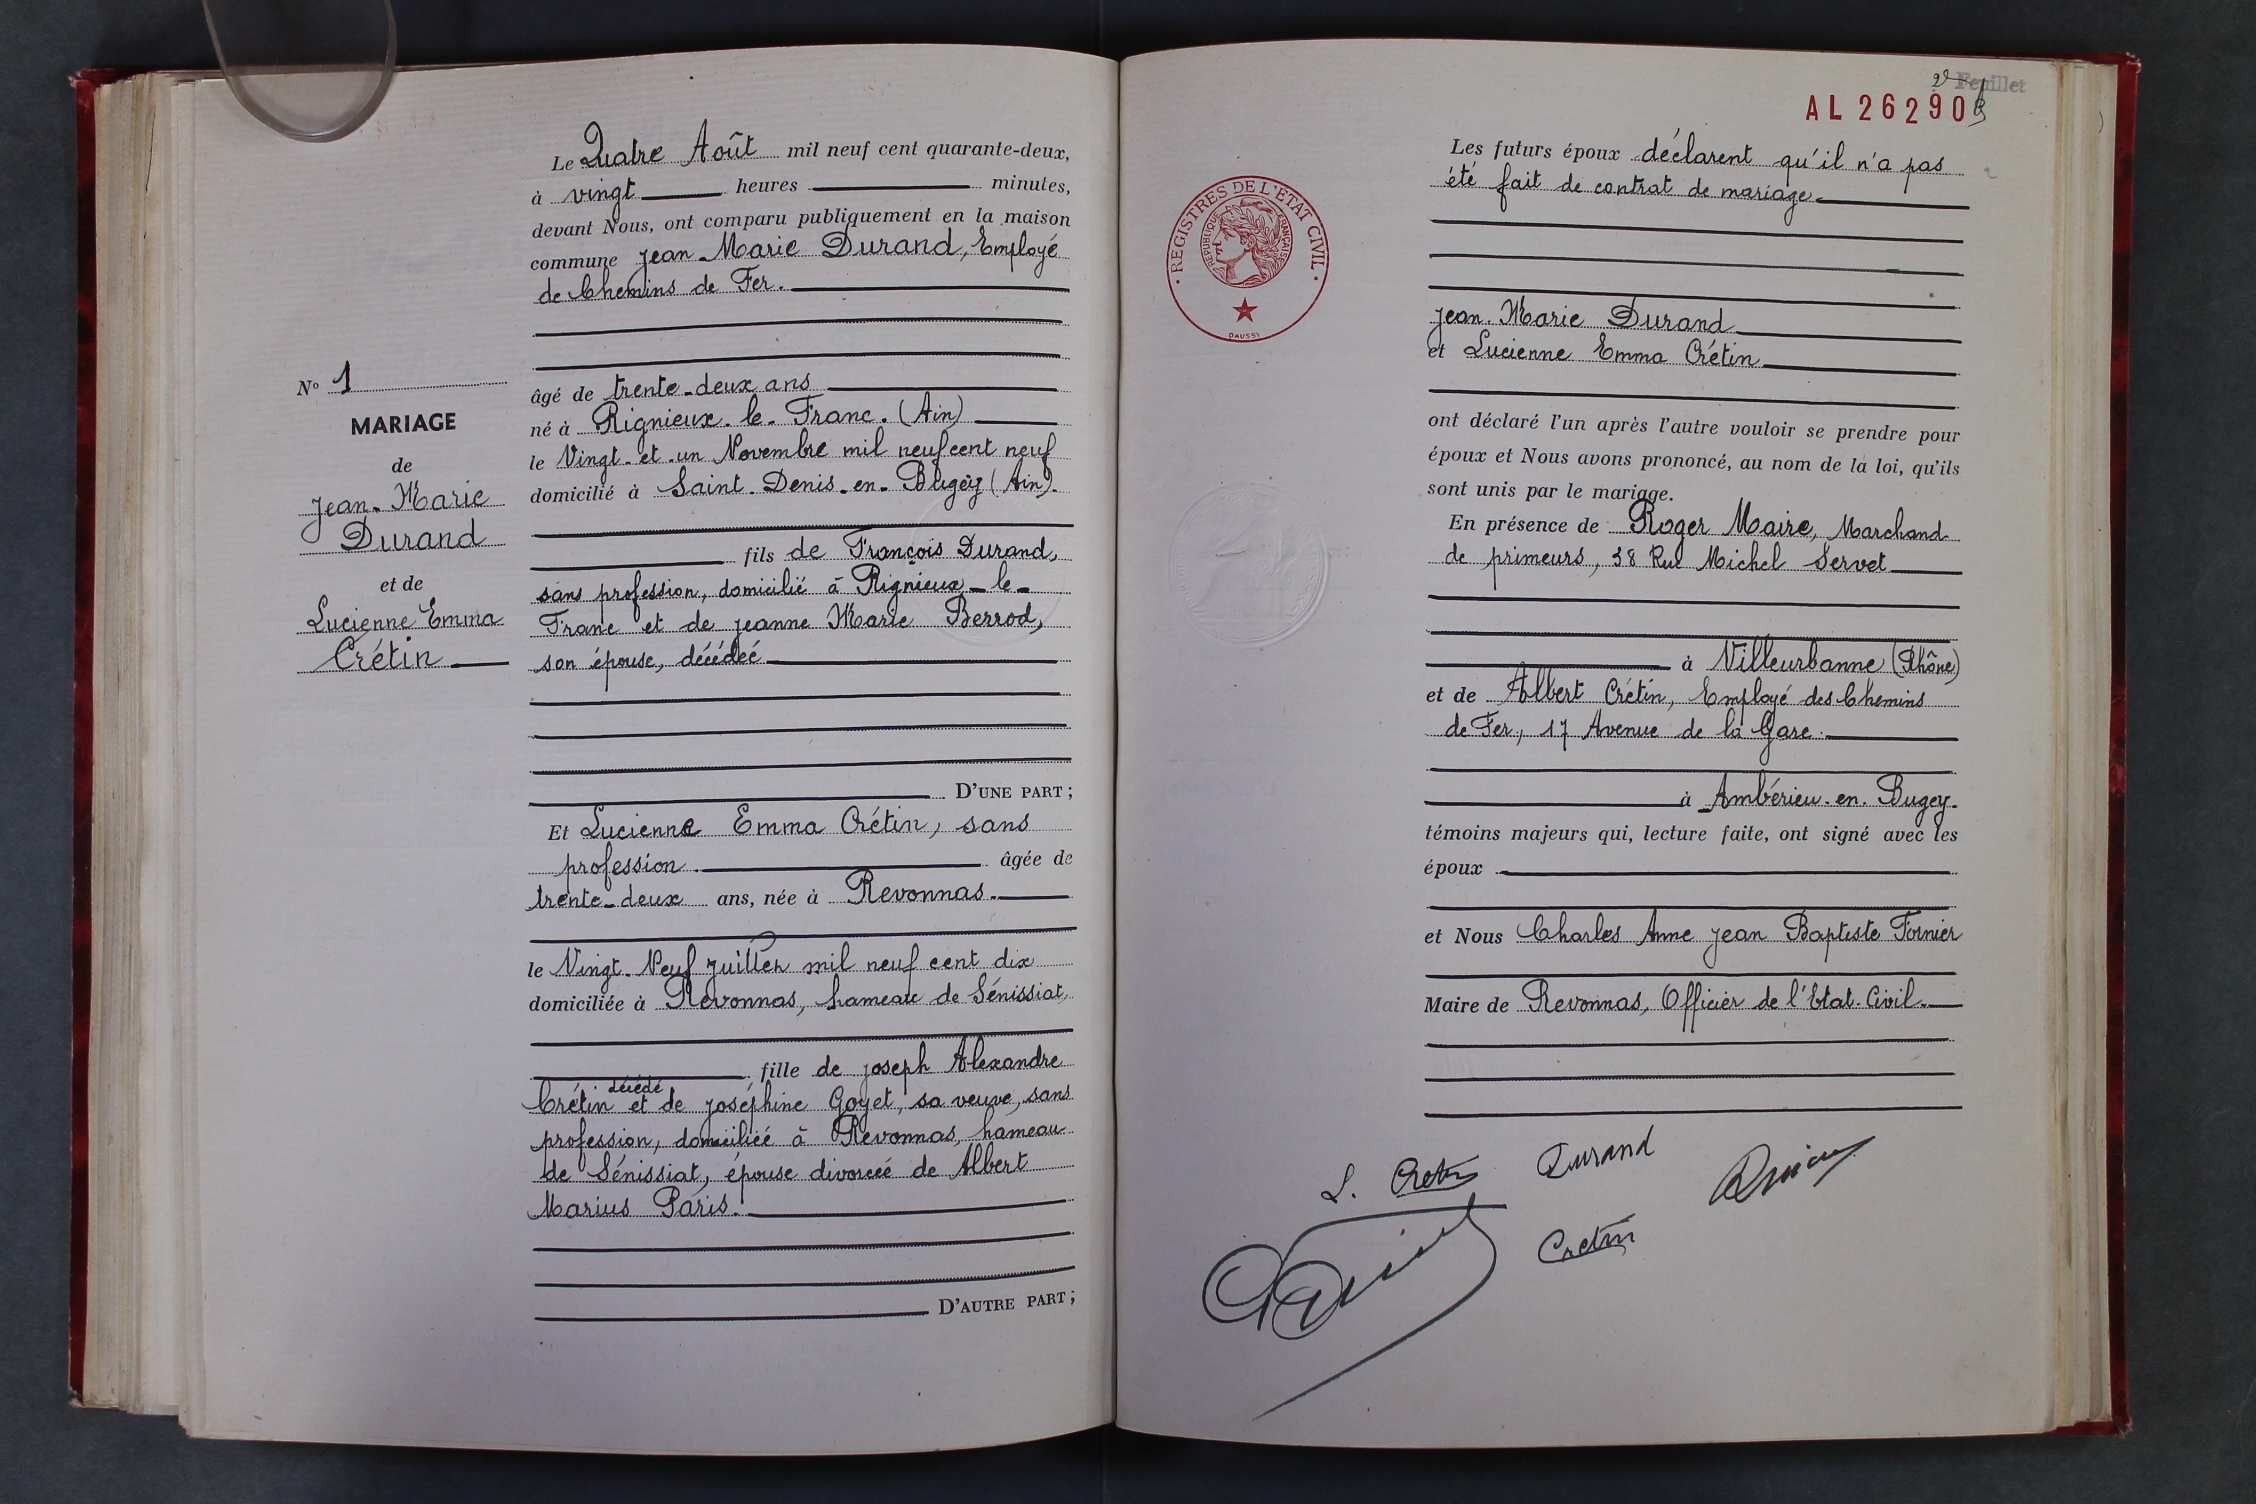 Le Quatre Août mil neuf cent quarante-deux,
à vingt heures minutes,
devant Nous, ont comparu publiquement en la maison
commune Jean Marie Durand, Employé
de Chemins de Fer.
âgé de trente-deux ans
né à Rignieux-le-Franc. (Ain)
le Vingt-et-un Novembre mil neuf cent neuf
domicilié à Saint-Denis-en-Bugey (Ain).
fils de François Durand,
sans profession, domicilié à Rignieux-le-
Franc et de Jeanne Marie Berrod,
son épouse, décédée
D'UNE PART ;
Et Lucienne Emma Crétin, sans
profession. âgée de
trente-deux ans, née à Revonnas.
le Vingt-Neuf Juillet mil neuf cent dix
domiciliée à Revonnas, hameau de Sénissiat
fille de Joseph Alexandre
décédé
Crétin et de Joséphine Goyet, sa veuve, sans
profession, domiciliée à Revonnas, hameau
de Sénissiat, épouse divorcée de Albert
Marius Paris.
D'AUTRE PART ;
N° 1
MARIAGE
de
Jean-Marie
Durand
et de
Lucienne Emma
Crétin
Feuillet
AL 26290
REGISTRES DE L'ETAT CIVIL
REPUBLIQUE FRANÇAISE
DAUSSI
Les futurs époux déclarent qu'il n'a pas
été fait de contrat de mariage.
Jean-Marie Durand
et Lucienne Emma Crétin
ont déclaré l'un après l'autre vouloir se prendre pour
époux et Nous avons prononcé, au nom de la loi, qu'ils
sont unis par le mariage.
En présence de Roger Maire, Marchand
de primeurs, 38 Rue Michel Servet
à Villeurbanne (Rhône)
et de Albert Crétin, Employé des Chemins
de Fer, 17 Avenue de la Gare.
à Ambérieu-en-Bugey.
témoins majeurs qui, lecture faite, ont signé avec les
époux
et Nous Charles Anne Jean Baptiste Fornier
Maire de Revonnas, Officier de l'Etat-Civil.
L. Cretin Durand
Cretin